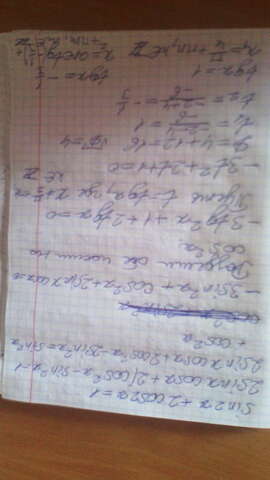 sin2x + 2cos2x = 1
2sinx cosx + 2(cos²x - sin²x) = 1
2sinx cosx + 2cos²x - 2sin²x = sin²x
+ cos²x
-3sin²x + cos²x + 2sinx cosx = 0
Разделим обе части на
cos²x
-3tg²x + 1 + 2tgx = 0
Пусть t = tgx, где x ≠ π/2 + πn
n ∈ Z
-3t² + 2t + 1 = 0
D = 4 + 12 = 16 √D = 4
t₁ = (-2-4)/-6 = 1
t₂ = (-2+4)/-6 = -1/3
tgx = 1 tgx = -1/3
x₁ = π/4 + πn, n ∈ Z x₂ = arctg(-1/3) + πn, n ∈ Z